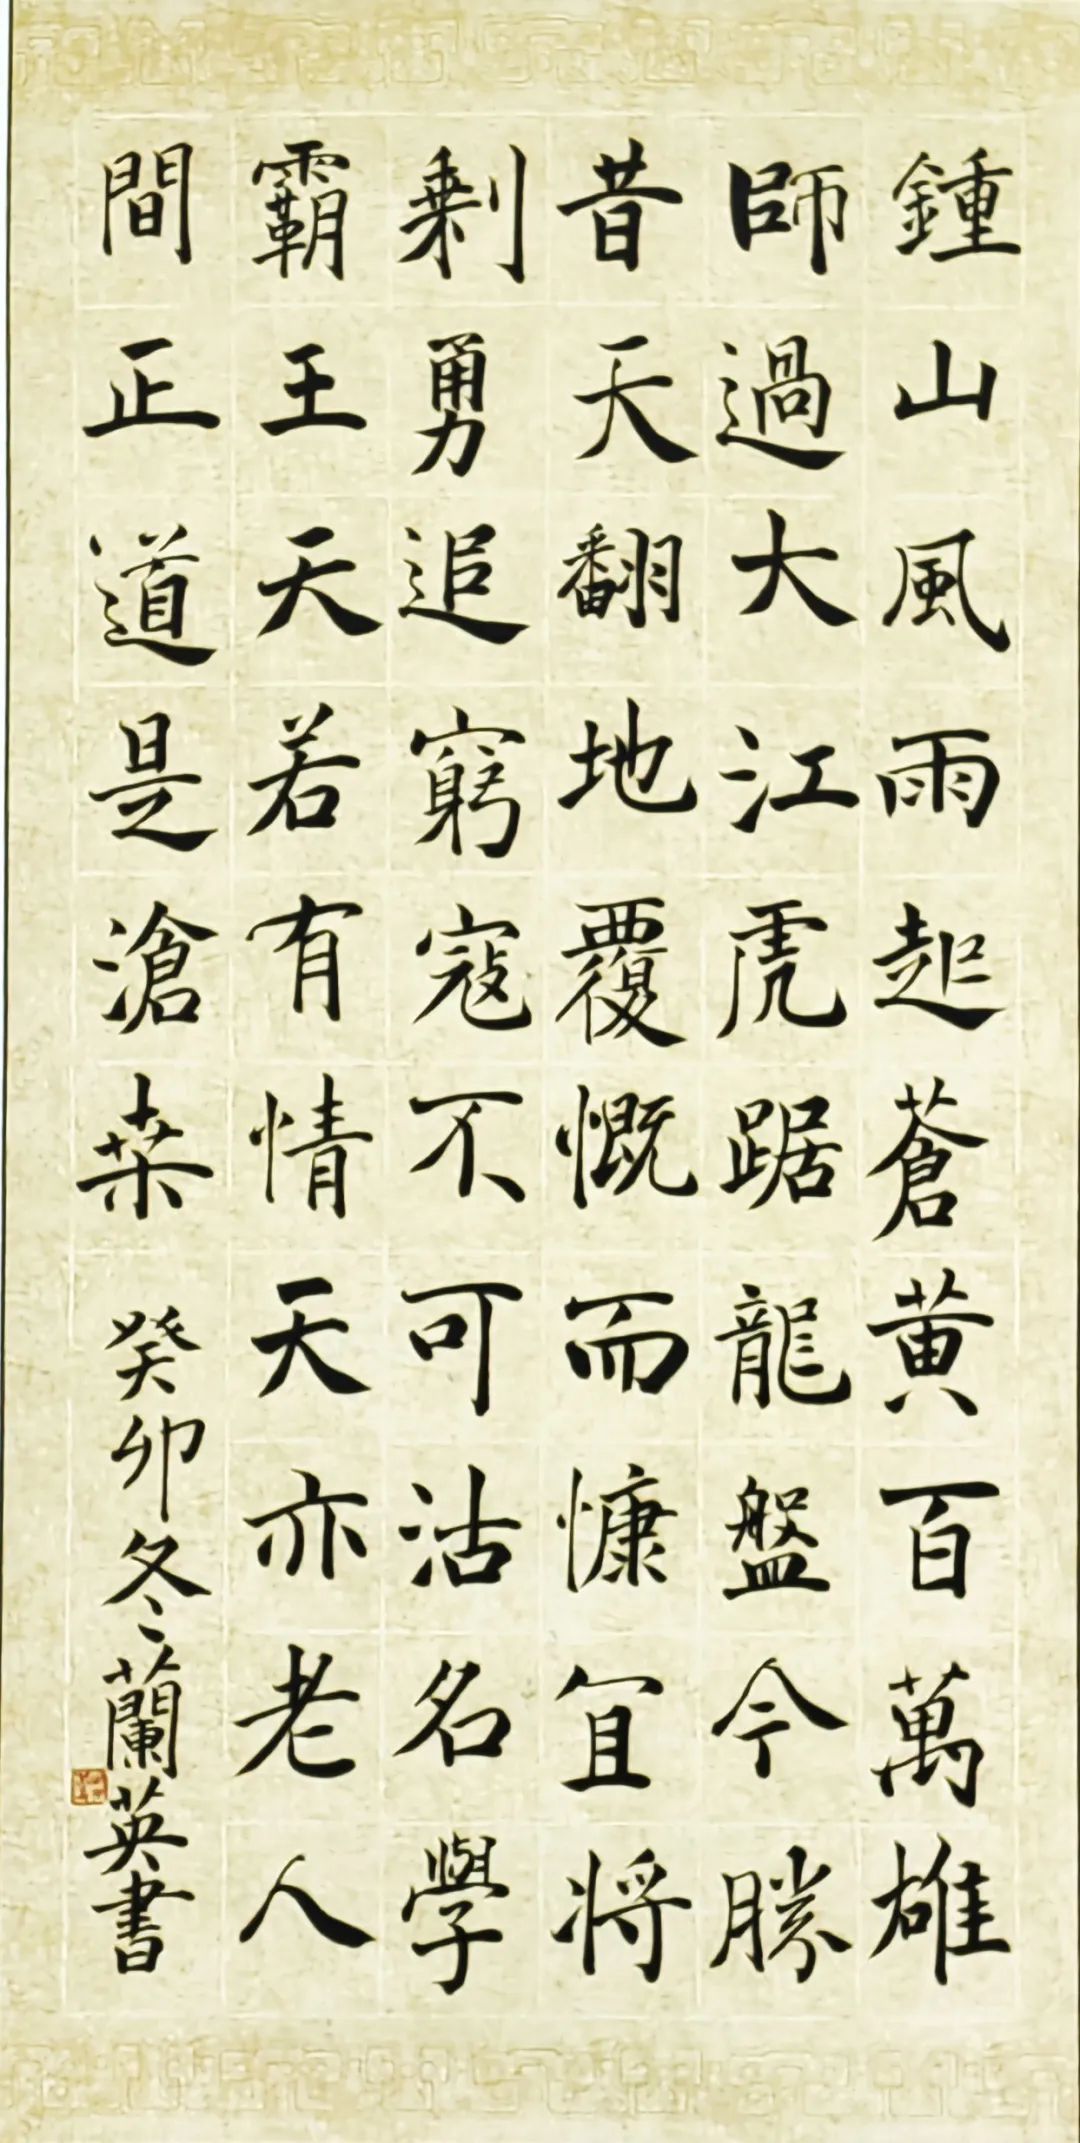 鍾山風雨起蒼黃百萬雄
師過大江虎踞龍盤今勝
昔天翻地覆慨而慷宜將
剩勇追窮寇不可沽名學
霸王天若有情天亦老人
間正道是滄桒 癸卯冬蘭英書